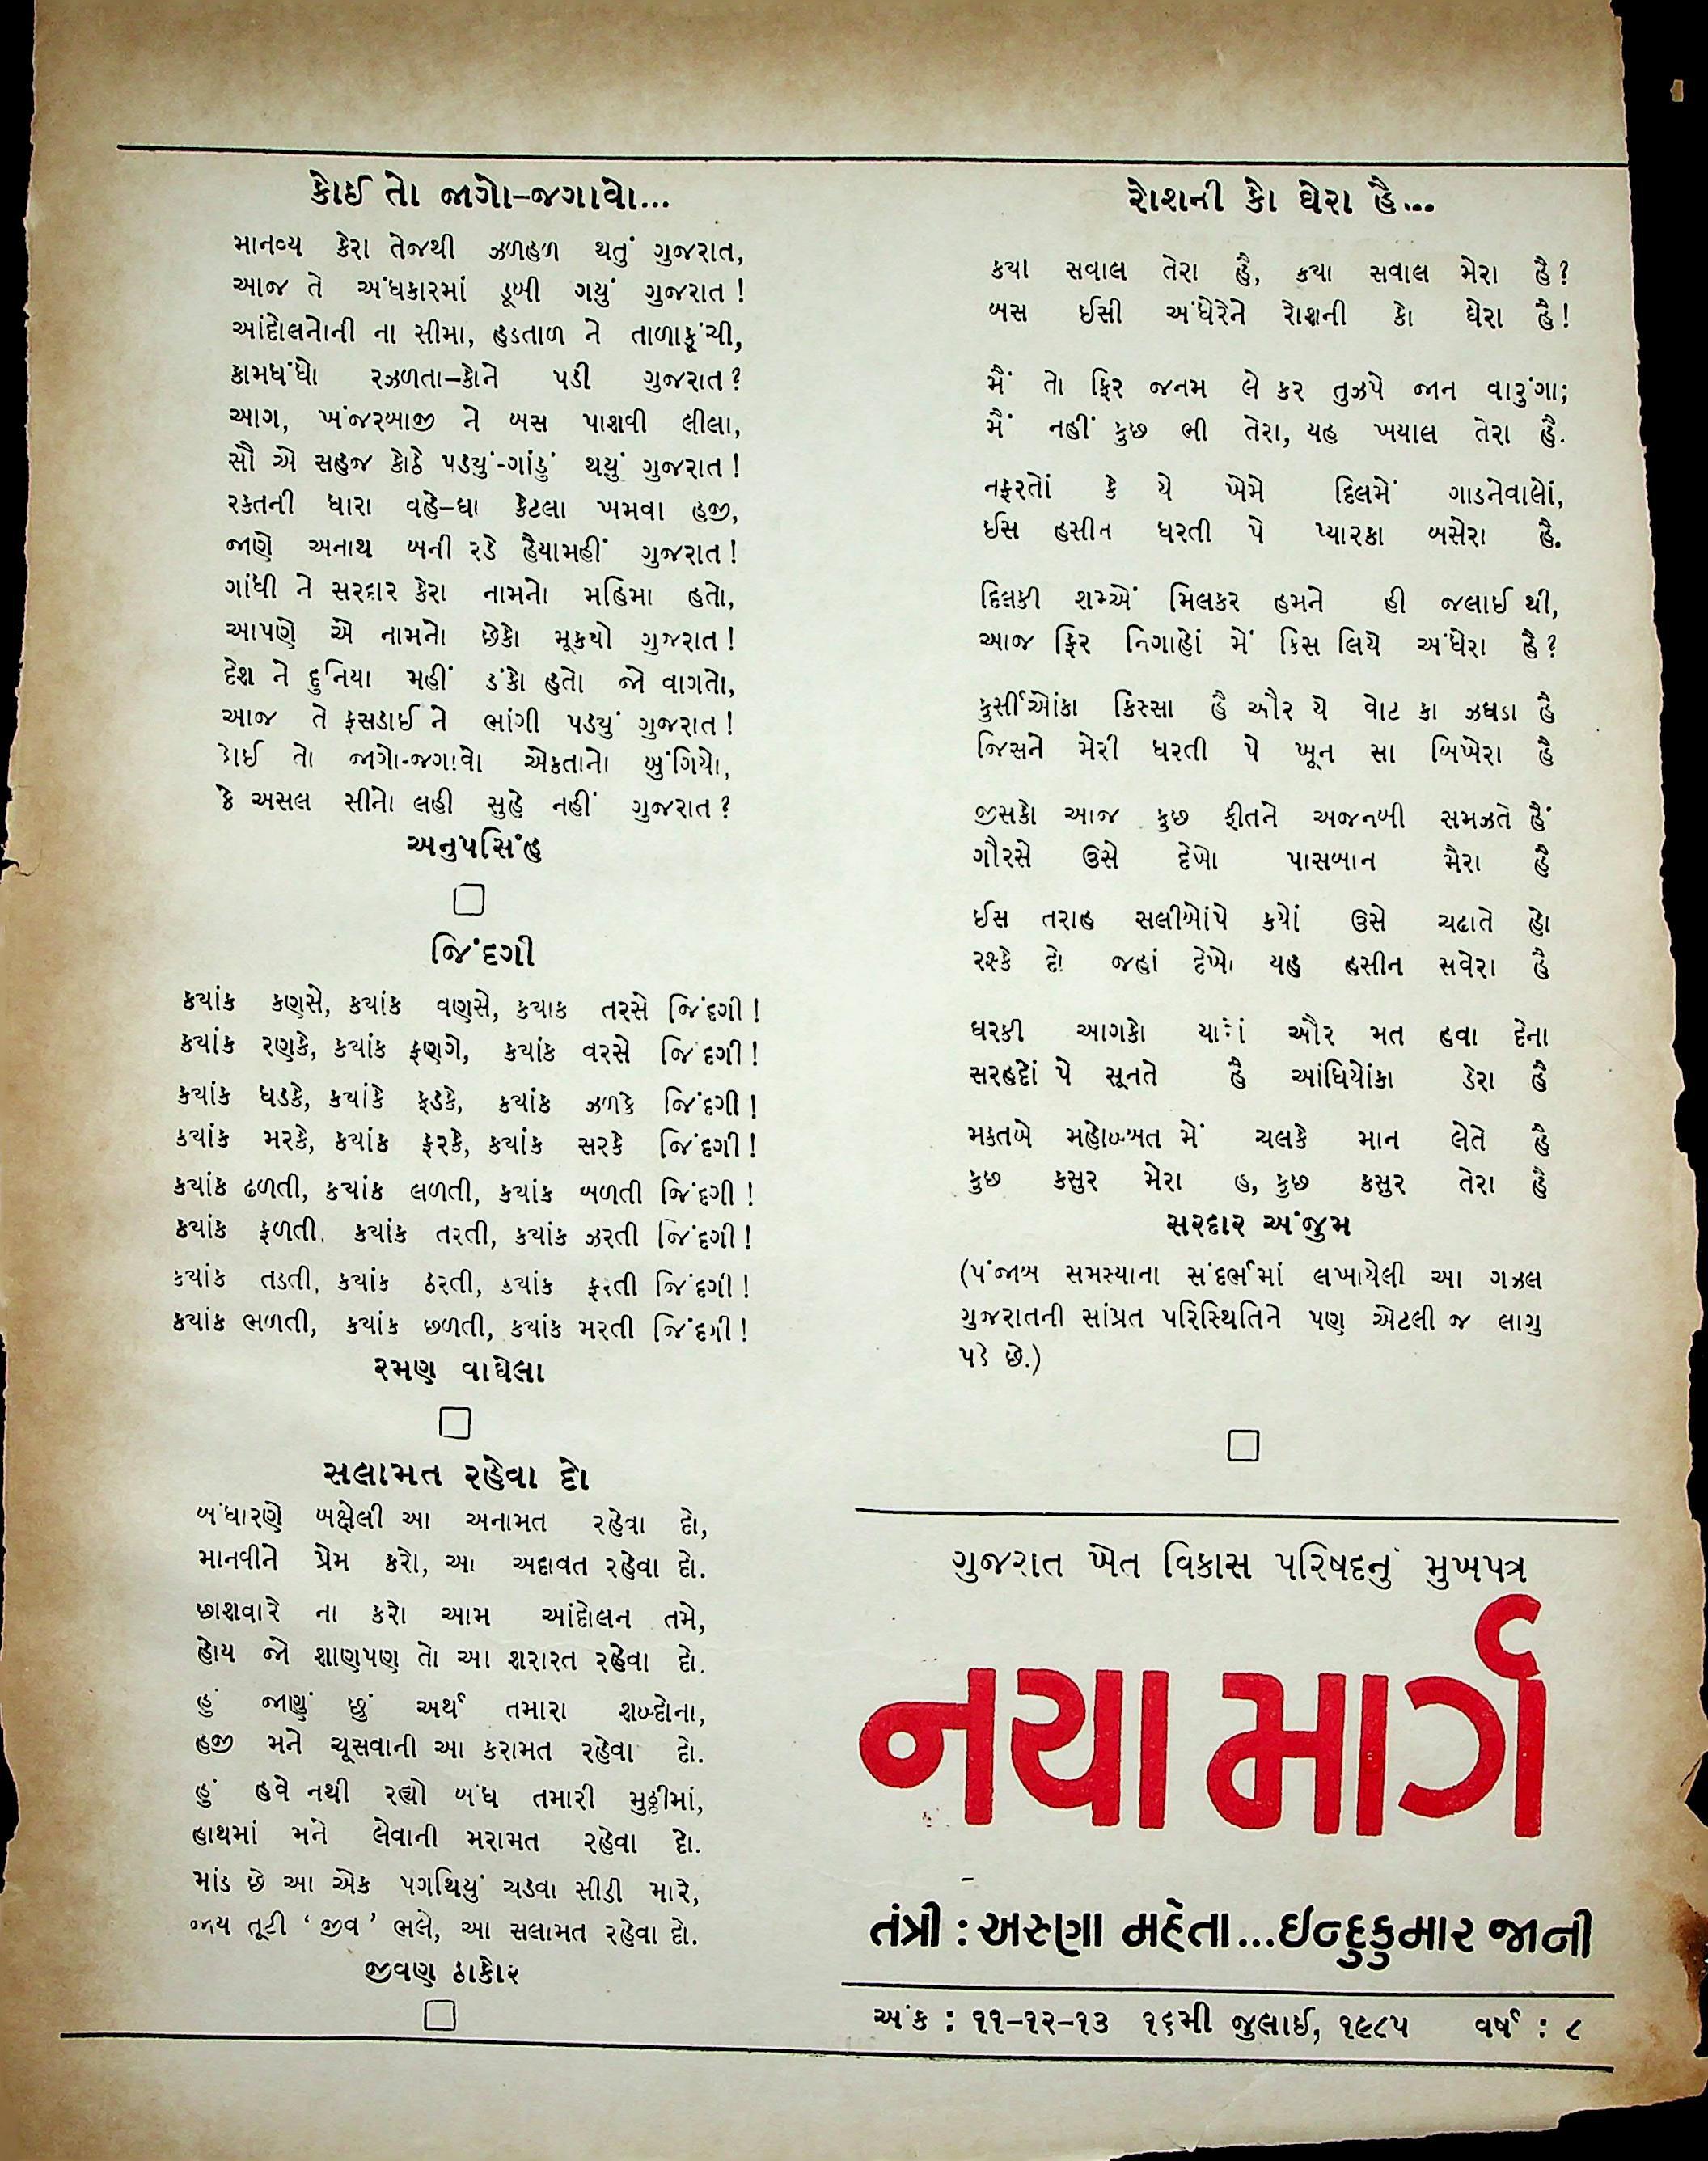 કોઈ તો જાગો-જગાવો...
માનવ્ય કેરા તેજથી ઝળહળ થતું ગુજરાત,
આજ તે અંધકારમાં ડૂબી ગયું ગુજરાત !
આંદોલનોની ના સીમા, હડતાળ ને તાળાકૂંચી,
કામધંધો રઝળતા-કોને પડી ગુજરાત ?
આગ, ખંજરબાજી ને બસ પાશવી લીલા,
સૌ એ સહજ કોઠે પડયું-ગાંડું થયું ગુજરાત !
રક્તની ધારા વહે-ઘા કેટલા ખમવા હજી,
જાણે અનાથ બની રડે હૈયામહીં ગુજરાત !
ગાંધી ને સરદાર કેરા નામનો મહિમા હતો,
આપણે એ નામનો છેકો મૂકયો ગુજરાત !
દેશ ને દુનિયા મહીં ડંકો હતો જો વાગતો,
આજ તે ફસડાઈ ને ભાંગી પડયું ગુજરાત !
કોઈ તો જાગો-જગાવો એકતાનો બુંગિયો,
કે અસલ સીનો લહી સુહે નહીં ગુજરાત ?
અનુપસિંહ
જિંદગી
કયાંક કણસે, કયાંક વણસે, કયાક તરસે જિંદગી !
કયાંક રણકે, કયાંક ફણગે, કયાંક વરસે જિંદગી !
કયાંક ધડકે, કયાંકે ફડકે, કયાંક ઝળકે જિંદગી !
કયાંક મરકે, કયાંક ફરકે, કયાંક સરકે જિંદગી !
કયાંક ઢળતી, કયાંક લળતી, કયાંક બળતી જિંદગી !
કયાંક ફળતી, કયાંક તરતી, કયાંક ઝરતી જિંદગી !
કયાંક તડતી, કયાંક ઠરતી, કયાંક ફરતી જિંદગી !
કયાંક ભળતી, કયાંક છળતી, કયાંક મરતી જિંદગી !
રમણ વાઘેલા
સલામત રહેવા દો
બંધારણે બક્ષેલી આ અનામત રહેવા દો,
માનવીને પ્રેમ કરો, આ અદાવત રહેવા દો.
છાશવારે ના કરો આમ આંદોલન તમે,
હોય જો શાણપણ તો આ શરારત રહેવા દો.
હું જાણું છું અર્થ તમારા શબ્દોના,
હજી મને ચૂસવાની આ કરામત રહેવા દો.
હું હવે નથી રહ્યો બંધ તમારી મુઠ્ઠીમાં,
હાથમાં મને લેવાની મરામત રહેવા દો.
માંડ છે આ એક પગથિયું ચડવા સીડી મારે,
જાય તૂટી ‘ જીવ ’ ભલે, આ સલામત રહેવા દો.
જીવણ ઠાકોર
રોશની કો ઘેરા હૈ...
કયા સવાલ તેરા હૈ, કયા સવાલ મેરા હૈ ?
બસ ઈસી અંધેરેને રોશની કો ઘેરા હૈ !
મૈં તો ફિર જનમ લે કર તુઝપે જાન વારુંગા;
મૈં નહીં કુછ ભી તેરા, યહ ખયાલ તેરા હૈ.
નફરતોં કે યે ખેમે દિલમેં ગાડનેવાલોં,
ઈસ હસીન ધરતી પે પ્યારકા બસેરા હૈ.
દિલકી શમ્એં મિલકર હમને હી જલાઈ થી,
આજ ફિર નિગાહોં મેં કિસ લિયે અંધેરા હૈ ?
કુર્સીઓંકા કિસ્સા હૈ ઔર યે વોટ કા ઝઘડા હૈ
જિસને મેરી ધરતી પે ખૂન સા બિખેરા હૈ
જીસકો આજ કુછ કીતને અજનબી સમઝતે હૈં
ગૌરસે ઉસે દેખો પાસબાન મૈરા હૈ
ઈસ તરાહ સલીબોંપે કયોં ઉસે ચઢાતે હો
રશ્કે દો જહાં દેખો યહ હસીન સવેરા હૈ
ઘરકી આગકો યારોં ઔર મત હવા દેના
સરહદોં પે સૂનતે હૈ આંધિયોંકા ડેરા હૈ
મકતબે મહોબ્બત મેં ચલકે માન લેતે હૈ
કુછ કસુર મેરા હ, કુછ કસુર તેરા હૈ
સરદાર અંજુમ
(પંજાબ સમસ્યાના સંદર્ભમાં લખાયેલી આ ગઝલ
ગુજરાતની સાંપ્રત પરિસ્થિતિને પણ એટલી જ લાગુ
પડે છે.)
ગુજરાત ખેત વિકાસ પરિષદનું મુખપત્ર
નયા માર્ગ
તંત્રી : અરુણા મહેતા...ઈન્દુકુમાર જાની
અંક : ૧૧-૧૨-૧૩ ૧૬મી જુલાઈ, ૧૯૮૫ વર્ષ : ૮